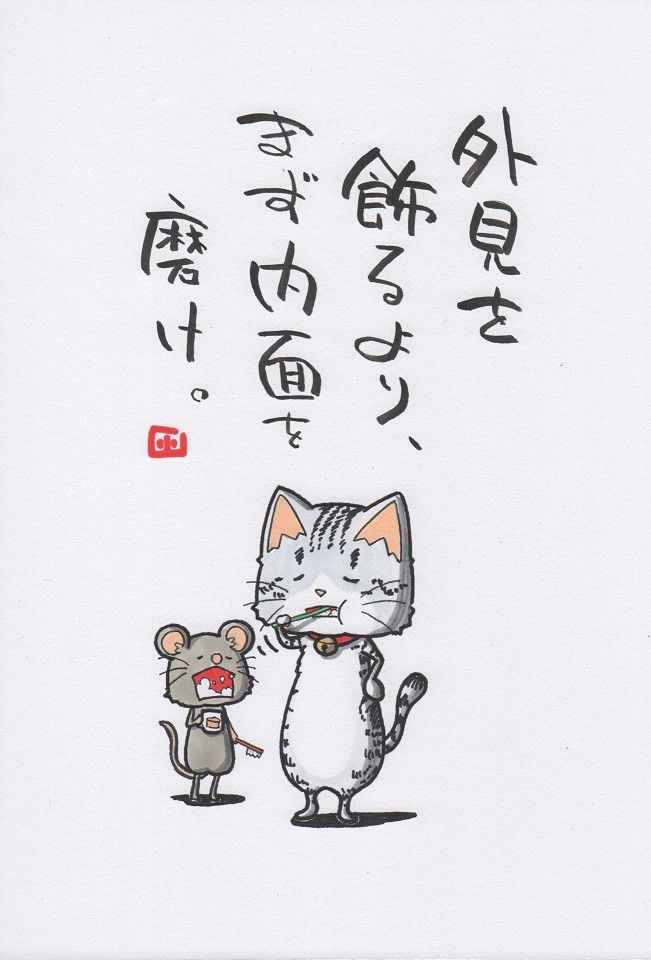 外見を
飾るより、
まず内面を
磨け。